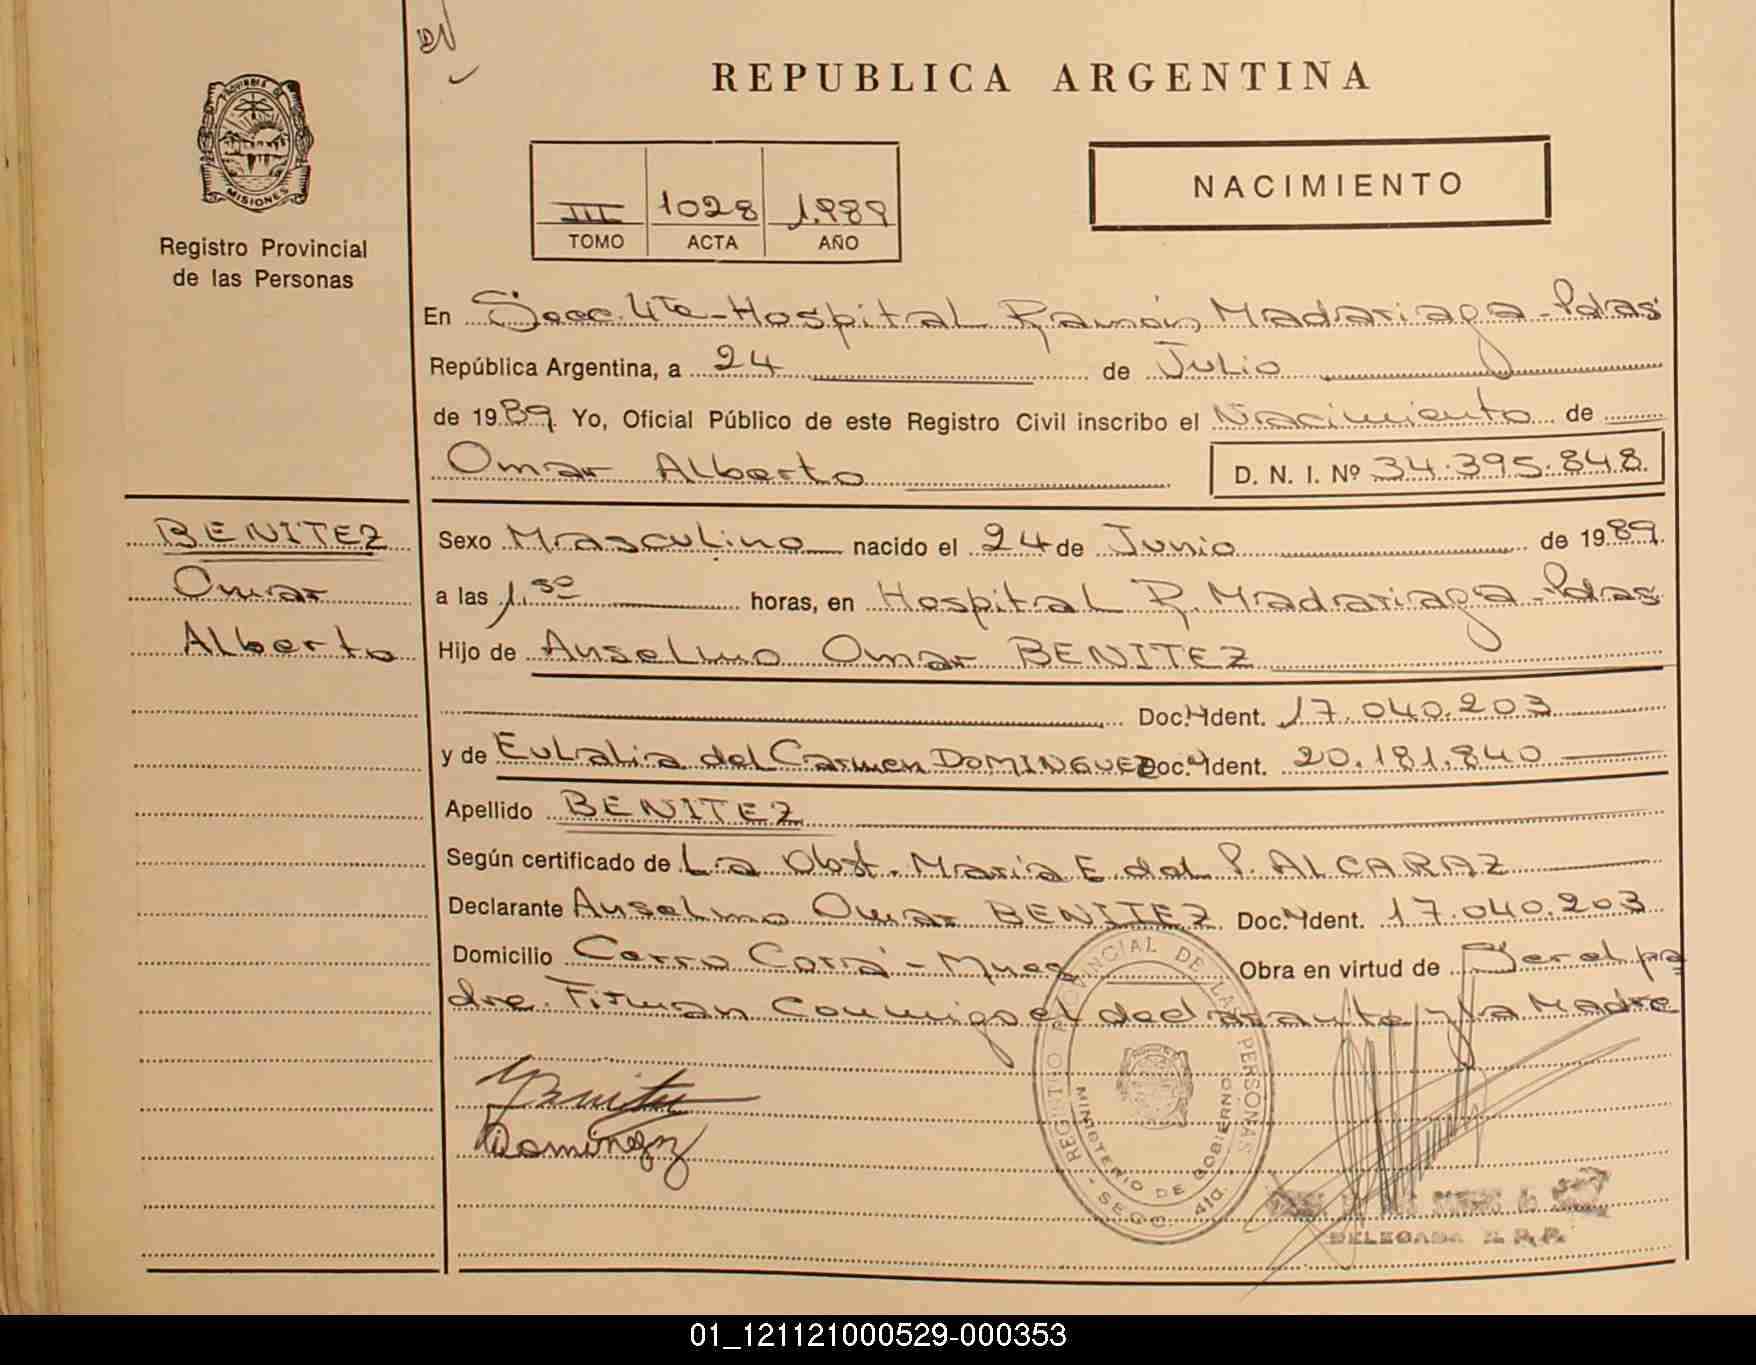 DN
REPUBLICA ARGENTINA
PROVINCIA DE MISIONES
Registro Provincial
de las Personas
III 1028 1.989
TOMO ACTA AÑO
NACIMIENTO
En Secc. 4ta - Hospital Ramón Madariaga - Pdas
República Argentina, a 24 de Julio
de 1989. Yo, Oficial Público de este Registro Civil inscribo el Nacimiento de
Omar Alberto D. N. I. Nº 34.395.848.
BENITEZ
Omar
Alberto
Sexo Masculino nacido el 24 de Junio de 1989.
a las 1.30 horas, en Hospital R. Madariaga - Pdas
Hijo de Anselmo Omar BENITEZ
Doc. Ident. 17.040.203
y de Eulalia del Carmen DOMINGUEZ Doc. Ident. 20.181.840
Apellido BENITEZ
Según certificado de La Obst. María E. del P. ALCARAZ
Declarante Anselmo Omar BENITEZ Doc. Ident. 17.040.203
Domicilio Cerro Corá - Mnes Obra en virtud de Ser el pa
dre. Firman Conmigo el declarante y la Madre
REGISTRO PROVINCIAL DE LAS PERSONAS
MINISTERIO DE GOBIERNO
- SECC. 4ta.
DELEGADA R. P. P.
01_121121000529-000353